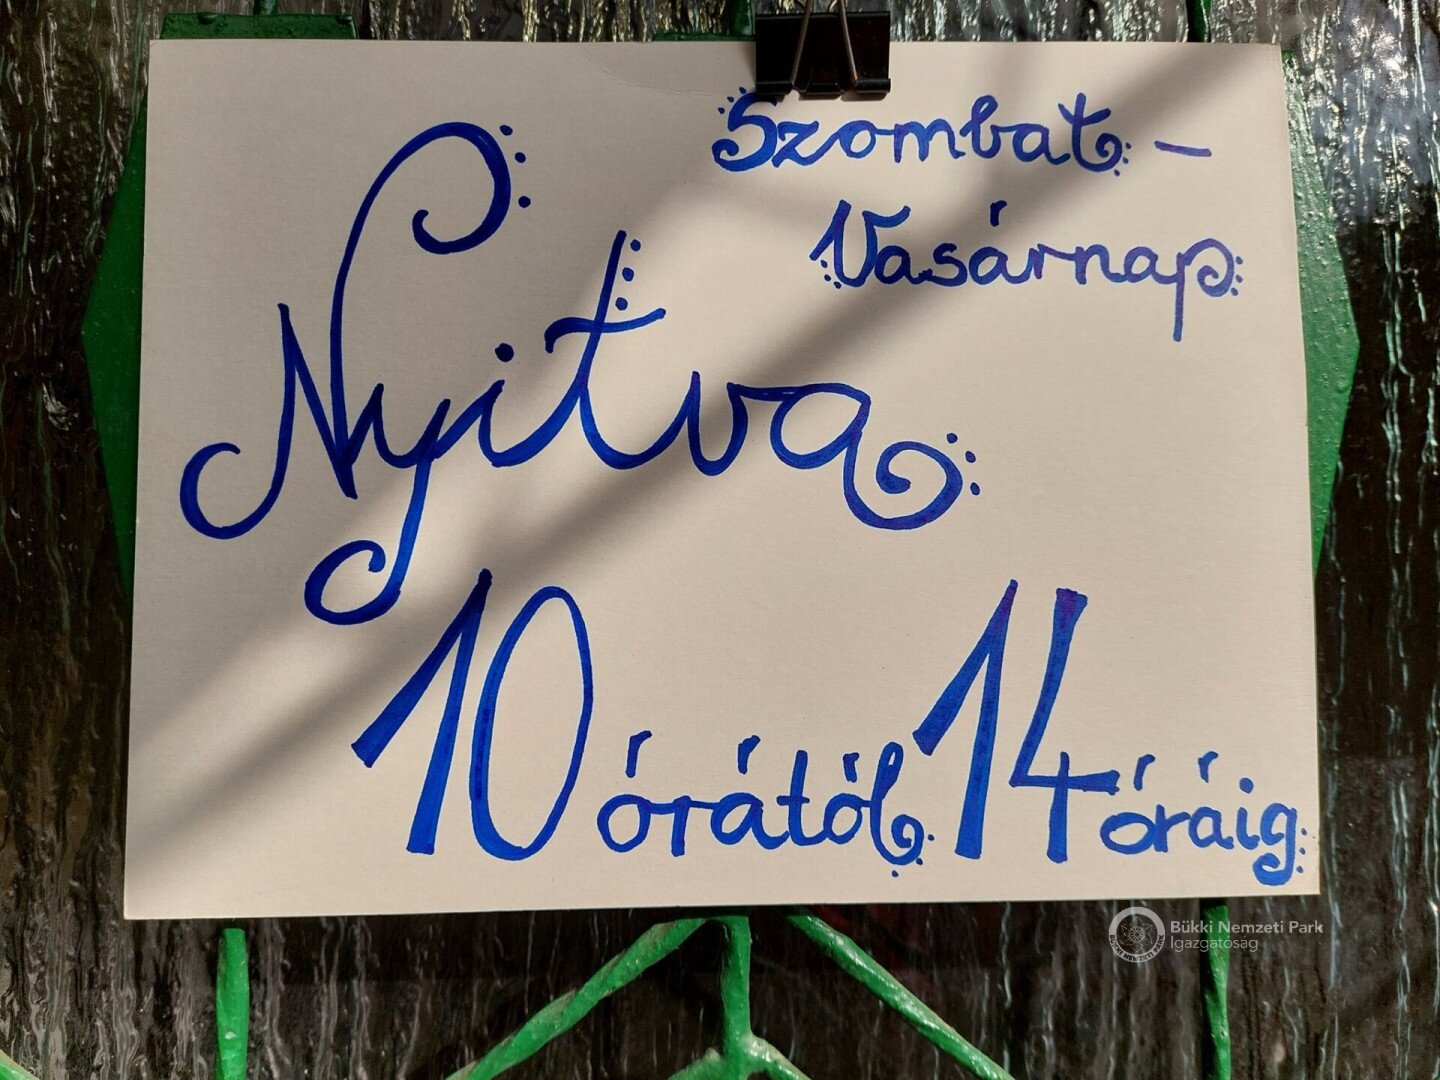 Szombat -
Vasárnap
Nyitva
10 órától 14 óráig
Bükki Nemzeti Park
Igazgatóság